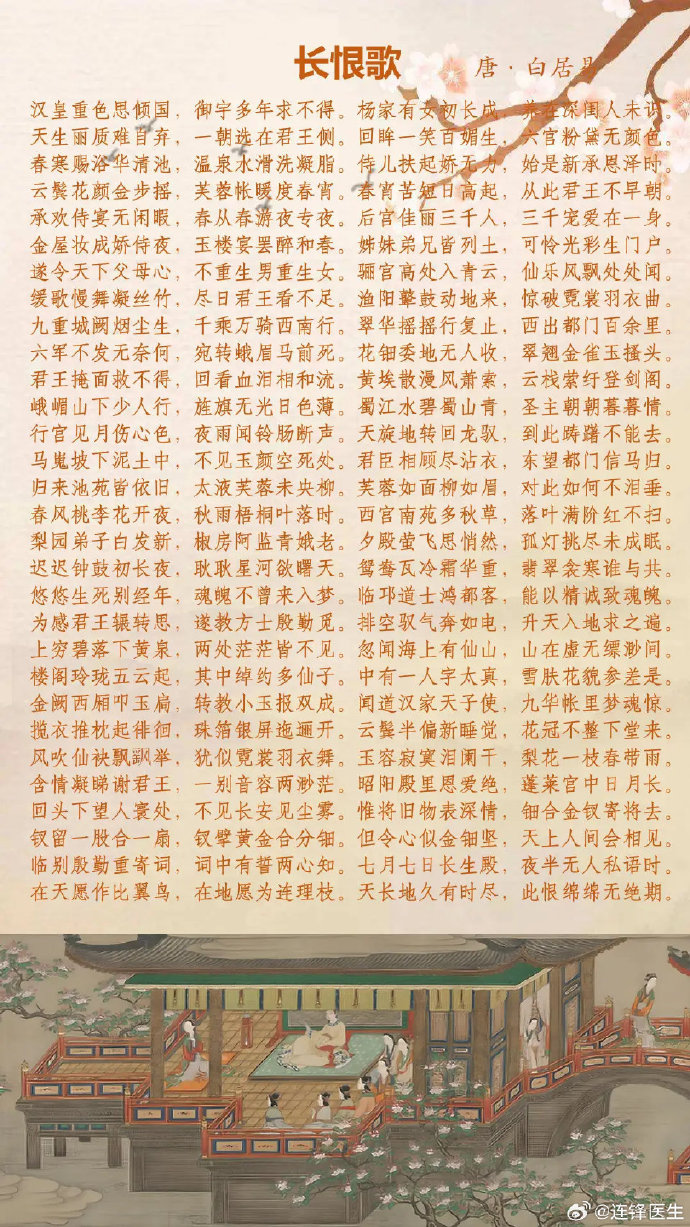 长恨歌
唐·白居易
汉皇重色思倾国，御宇多年求不得。杨家有女初长成，养在深闺人未识。
天生丽质难自弃，一朝选在君王侧。回眸一笑百媚生，六宫粉黛无颜色。
春寒赐浴华清池，温泉水滑洗凝脂。侍儿扶起娇无力，始是新承恩泽时。
云鬓花颜金步摇，芙蓉帐暖度春宵。春宵苦短日高起，从此君王不早朝。
承欢侍宴无闲暇，春从春游夜专夜。后宫佳丽三千人，三千宠爱在一身。
金屋妆成娇侍夜，玉楼宴罢醉和春。姊妹弟兄皆列土，可怜光彩生门户。
遂令天下父母心，不重生男重生女。骊宫高处入青云，仙乐风飘处处闻。
缓歌慢舞凝丝竹，尽日君王看不足。渔阳鼙鼓动地来，惊破霓裳羽衣曲。
九重城阙烟尘生，千乘万骑西南行。翠华摇摇行复止，西出都门百余里。
六军不发无奈何，宛转蛾眉马前死。花钿委地无人收，翠翘金雀玉搔头。
君王掩面救不得，回看血泪相和流。黄埃散漫风萧索，云栈萦纡登剑阁。
峨嵋山下少人行，旌旗无光日色薄。蜀江水碧蜀山青，圣主朝朝暮暮情。
行宫见月伤心色，夜雨闻铃肠断声。天旋地转回龙驭，到此踌躇不能去。
马嵬坡下泥土中，不见玉颜空死处。君臣相顾尽沾衣，东望都门信马归。
归来池苑皆依旧，太液芙蓉未央柳。芙蓉如面柳如眉，对此如何不泪垂。
春风桃李花开夜，秋雨梧桐叶落时。西宫南苑多秋草，落叶满阶红不扫。
梨园弟子白发新，椒房阿监青娥老。夕殿萤飞思悄然，孤灯挑尽未成眠。
迟迟钟鼓初长夜，耿耿星河欲曙天。鸳鸯瓦冷霜华重，翡翠衾寒谁与共。
悠悠生死别经年，魂魄不曾来入梦。临邛道士鸿都客，能以精诚致魂魄。
为感君王辗转思，遂教方士殷勤觅。排空驭气奔如电，升天入地求之遍。
上穷碧落下黄泉，两处茫茫皆不见。忽闻海上有仙山，山在虚无缥渺间。
楼阁玲珑五云起，其中绰约多仙子。中有一人字太真，雪肤花貌参差是。
金阙西厢叩玉扃，转教小玉报双成。闻道汉家天子使，九华帐里梦魂惊。
揽衣推枕起徘徊，珠箔银屏迤逦开。云鬓半偏新睡觉，花冠不整下堂来。
风吹仙袂飘飖举，犹似霓裳羽衣舞。玉容寂寞泪阑干，梨花一枝春带雨。
含情凝睇谢君王，一别音容两渺茫。昭阳殿里恩爱绝，蓬莱宫中日月长。
回头下望人寰处，不见长安见尘雾。惟将旧物表深情，钿合金钗寄将去。
钗留一股合一扇，钗擘黄金合分钿。但令心似金钿坚，天上人间会相见。
临别殷勤重寄词，词中有誓两心知。七月七日长生殿，夜半无人私语时。
在天愿作比翼鸟，在地愿为连理枝。天长地久有时尽，此恨绵绵无绝期。
@连锋医生